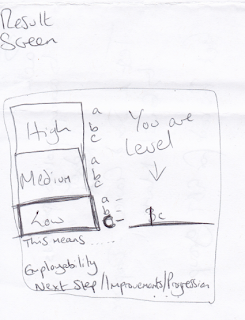 Result
Screen
High
a
b
c
Medium
a
b
c
Low
a -
b -
c -
You are
level
↓
3c
This means .....
Employability
Next Step/Improvements/Progression